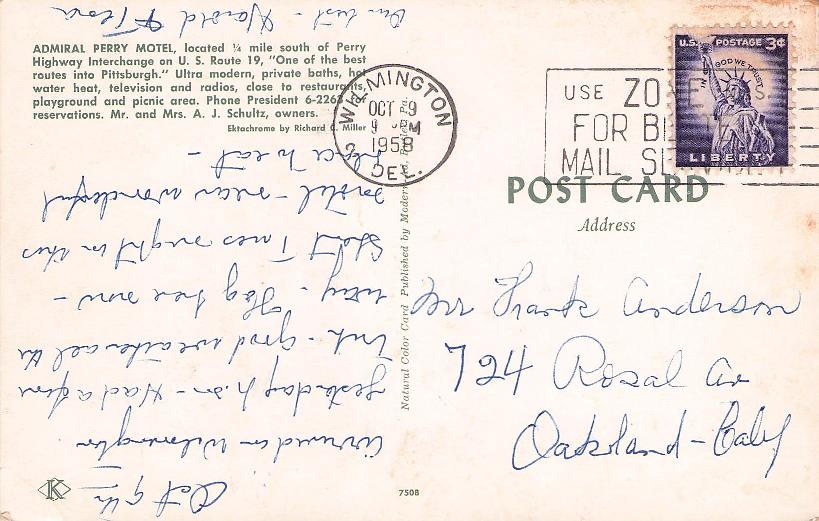 ADMIRAL PERRY MOTEL, located ¼ mile south of Perry
Highway Interchange on U. S. Route 19, "One of the best
routes into Pittsburgh." Ultra modern, private baths, hot
water heat, television and radios, close to restaurants,
playground and picnic area. Phone President 6-2263
reservations. Mr. and Mrs. A. J. Schultz, owners.
Ektachrome by Richard C. Miller
Oct 9th
Arrived in Wilmington
yesterday P.M. - Had a fine
trip - good weather all the
way. Fog here now -
Spent Tues night in this
motel - near wonderful
place to eat -
Our best - Harold & Flora
K
Natural Color Card Published by Modern
7508
WILMINGTON
OCT 9
9 M
1958
DEL.
2
USE ZONE
FOR
MAIL
U.S. POSTAGE 3¢
IN GOD WE TRUST
LIBERTY
POST CARD
Address
Mr Frank Anderson
724 Rosal Av
Oakland - Calif